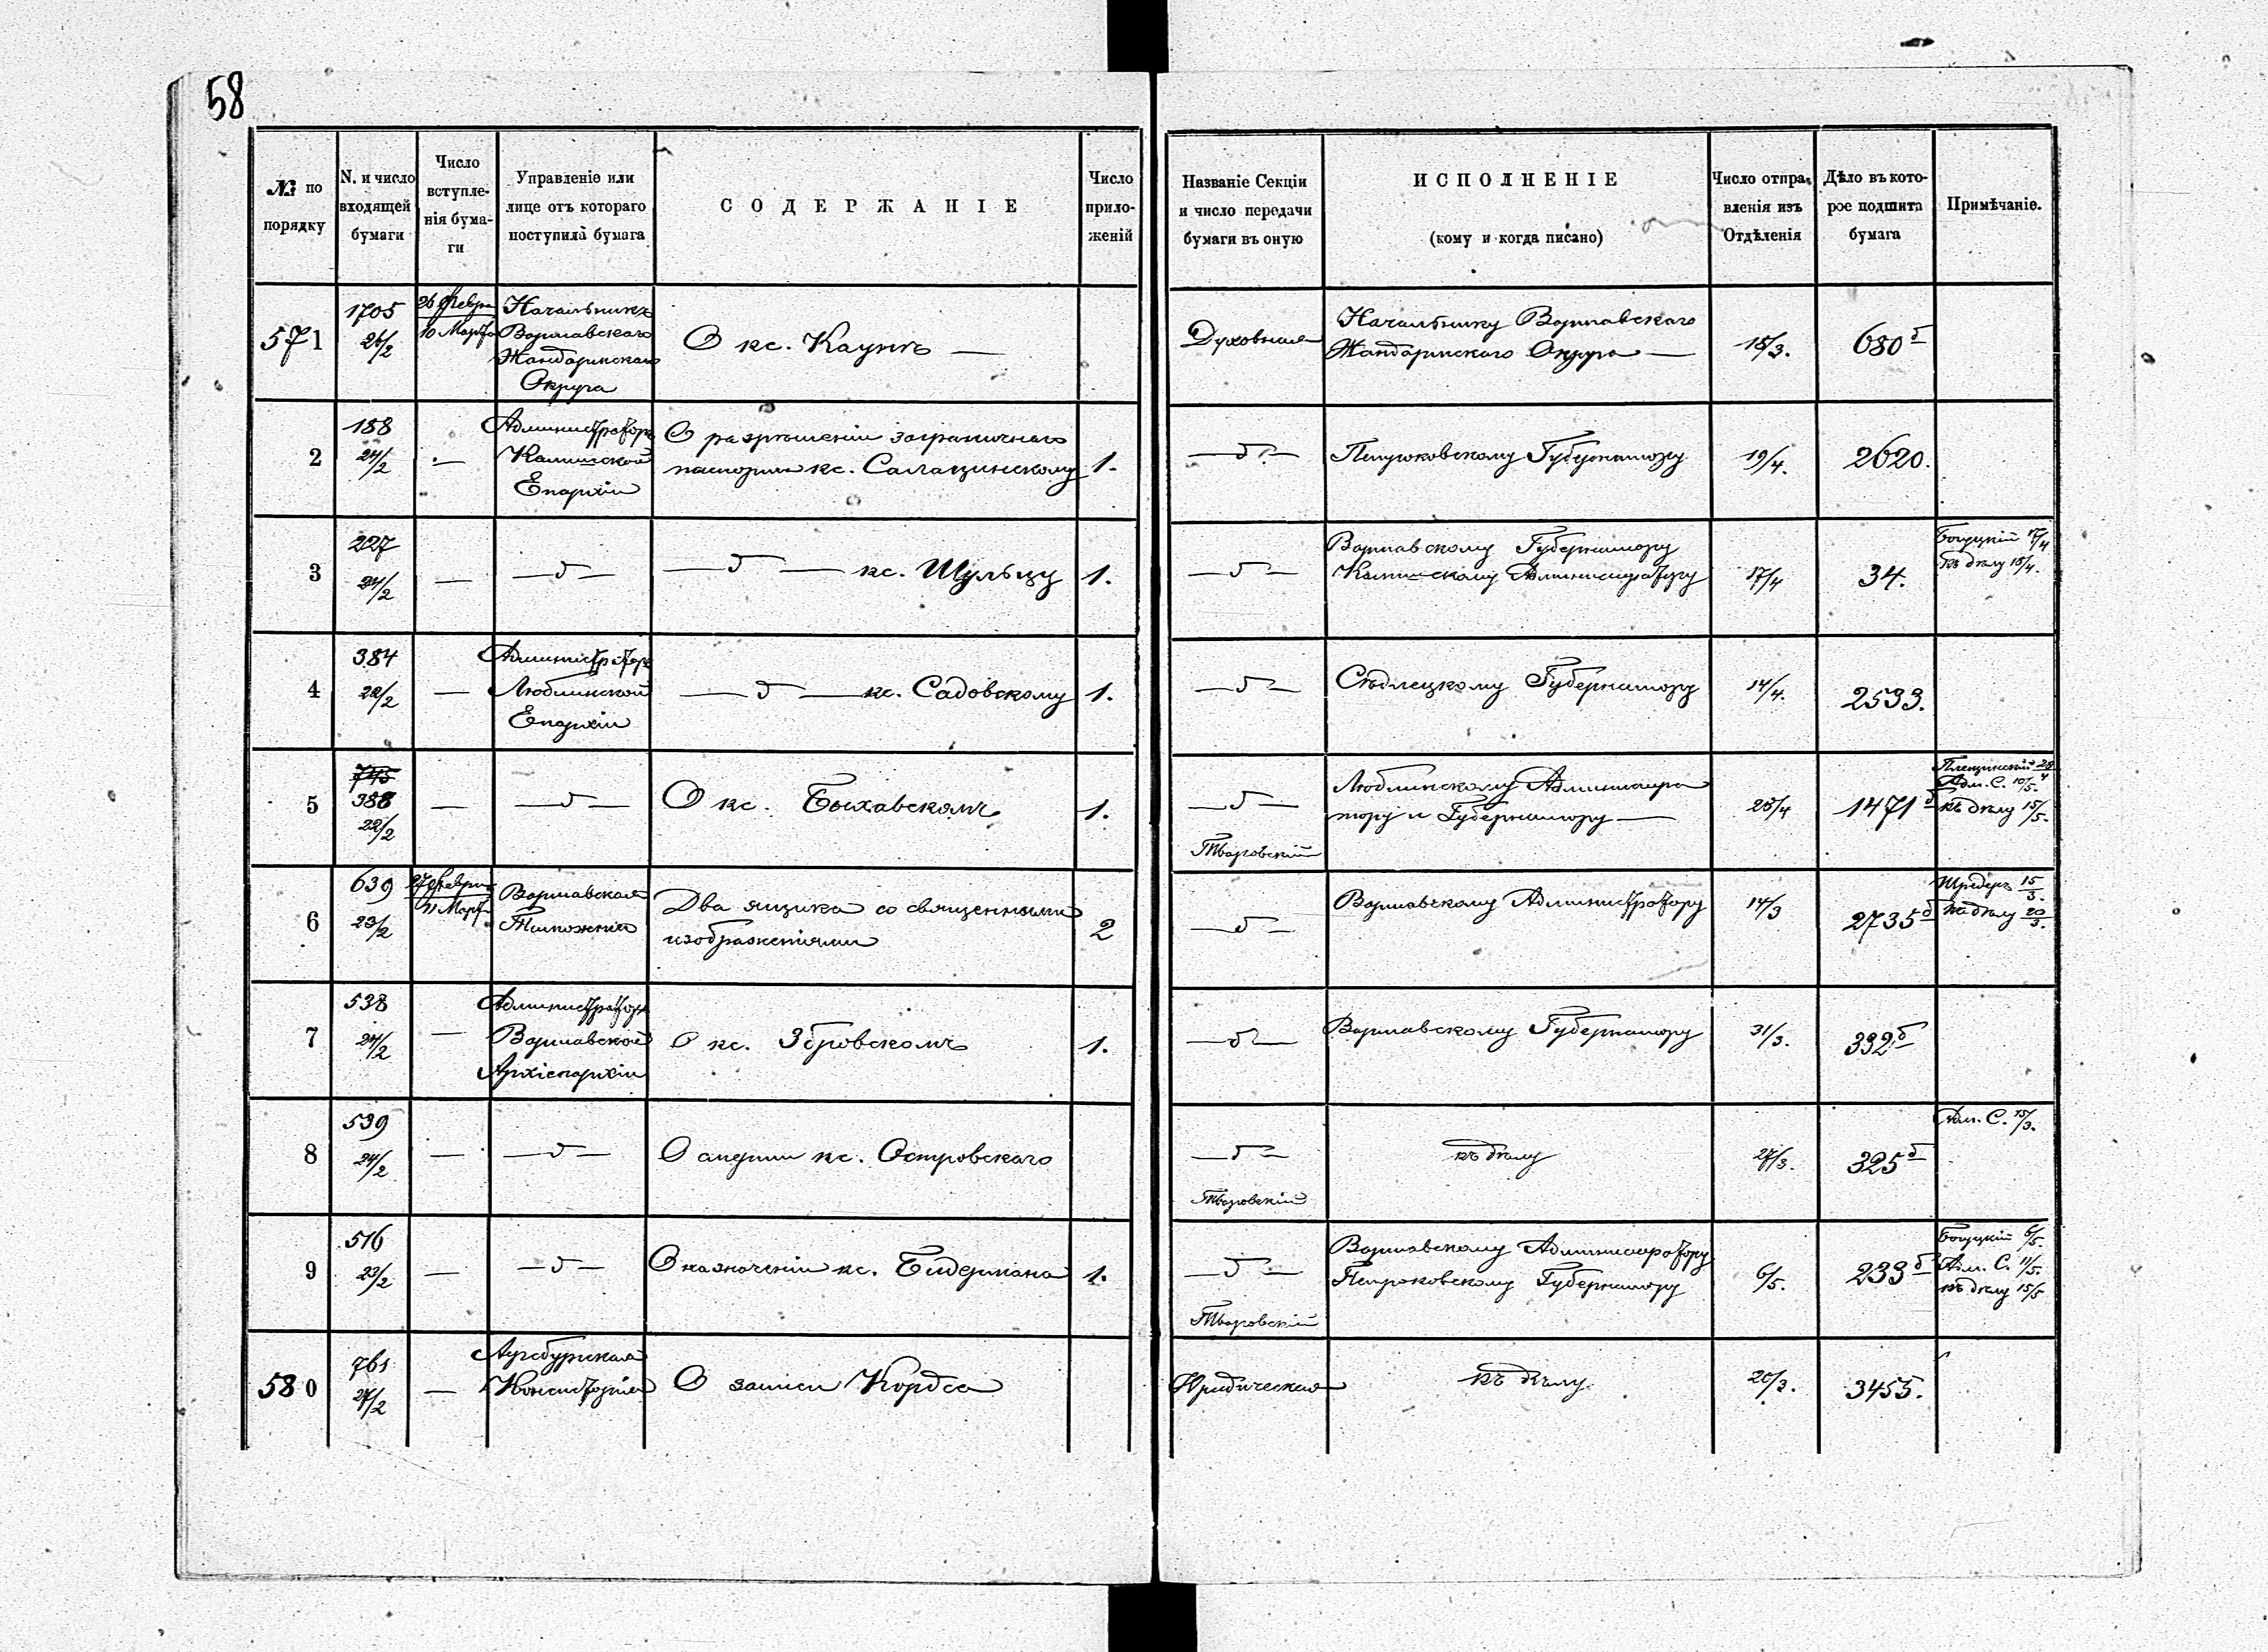 58
№ по порядку
N. и число входящей бумаги
Число вступле-нія бума-ги
Управленіе или лице отъ котораго поступила бумага
СОДЕРЖАНІЕ
Число прило-женій
Названіе Секціи и число передачи бумаги въ оную
ИСПОЛНЕНІЕ
(кому и когда писано)
Число отпра-вленія изъ Отдѣленія
Дѣло въ кото-рое подшита бумага
Примѣчаніе.
571
1705
26/2
26 Февра
10 Марта
Начальникъ
Варшавскаго
Жандармскаго
Округа
О кс. Каунъ —
Духовная
Начальнику Варшавскаго
Жандармскаго Округа —
18/3.
680 б
2
188
24/2
—
Администраторъ
Калишской
Епархіи
О разрѣшеніи заграничнаго
паспорта кс. Салацинскому
1.
— б —
Петроковскому Губернатору
19/4.
2620.
3
227
24/2
—
— б —
— б — кс. Шульцу
1.
— б —
Варшавскому Губернатору
Калишскому Администратору
17/4
34.
Богуцкій 17/4
къ дѣлу 18/4.
4
384
22/2
—
Администраторъ
Люблинской
Епархіи
— б — кс. Садовскому
1.
— б —
Сѣдлецкому Губернатору
14/4.
2533.
5
745
388
22/2
—
— б —
О кс. Быхавскомъ
1.
— б —
Тваровскій
Люблинскому Администра
тору и Губернатору —
28/4
1471 б
Адм. С. 10/5.
къ дѣлу 15/5.
6
639
23/2
27 Февраля
11 Марта
Варшавская
Таможня
Два ящика со священными
изображеніями
2
— б —
Варшавскому Администратору
14/3
2735 б
Шредеръ 15/3.
къ дѣлу 20/3.
7
538
24/2
—
Администраторъ
Варшавской
Архіепархіи
О кс. Збровскомъ
1.
— б —
Варшавскому Губернатору
31/3.
332 б
8
539
24/2
—
— б —
О смерти кс. Островскаго
— б —
Тваровскій
къ дѣлу
27/3.
325 б
Адм. С. 15/3.
9
516
23/2
—
— б —
О назначеніи кс. Бидермана
1.
— б —
Тваровскій
Варшавскому Администратору
Петроковскому Губернатору
6/5.
233 б
Богуцкій 6/5.
Адм. С. 11/5.
къ дѣлу 15/5
580
761
27/2
—
Аугсбургская
Консисторія
О записи Кордса
Юридическая
къ дѣлу
20/3.
3455.